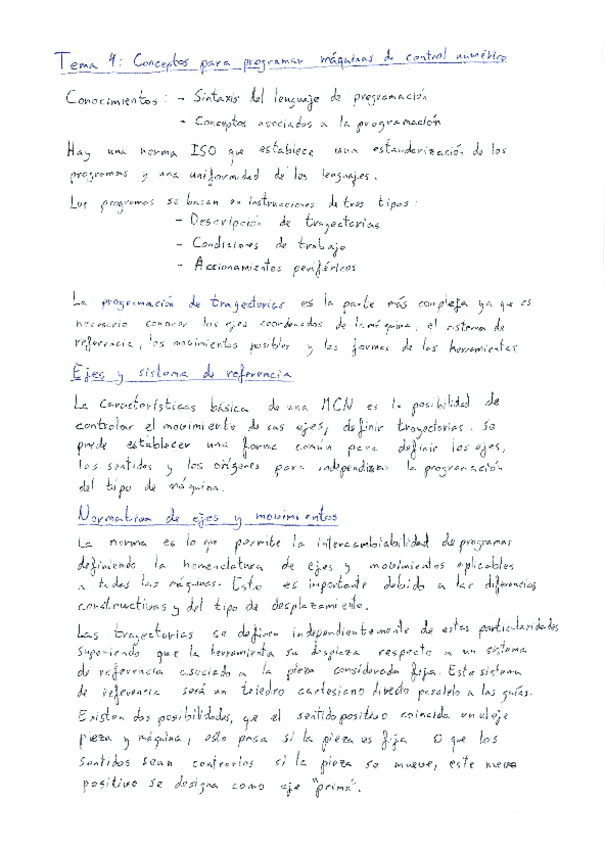 Tema 4: Conceptos para programar máquinas de control numérico
Conocimientos: - Sintaxis del lenguaje de programación
- Conceptos asociados a la programación
Hay una norma ISO que establece una estandarización de los
programas y una uniformidad de los lenguajes.
Los programas se basan en instrucciones de tres tipos:
- Descripción de trayectorias
- Condiciones de trabajo
- Accionamientos periféricos
La programación de trayectorias es la parte más compleja ya que es
necesario conocer los ejes coordenados de la máquina, el sistema de
referencia, los movimientos posibles y las formas de las herramientas
Ejes y sistema de referencia
La características básica de una MCN es la posibilidad de
controlar el movimiento de sus ejes, definir trayectorias. Se
puede establecer una forma común para definir los ejes,
los sentidos y los orígenes para independizar la programación
del tipo de máquina.
Normativa de ejes y movimientos
La norma es lo que permite la intercambiabilidad de programas
definiendo la nomenclatura de ejes y movimientos aplicables
a todas las máquinas. Esto es importante debido a las diferencias
constructivas y del tipo de desplazamiento.
Las trayectorias se definen independientemente de estas particularidades
suponiendo que la herramienta su desplaza respecto a un sistema
de referencia asociado a la pieza considerada fija. Este sistema
de referencia será un triedro cartesiano directo paralelo a las guías.
Existen dos posibilidades, que el sentido positivo coincida en eje
pieza y máquina, esto pasa si la pieza es fija o que los
sentidos sean contrarios si la pieza se mueve, este nuevo
positivo se designa como eje "prima".